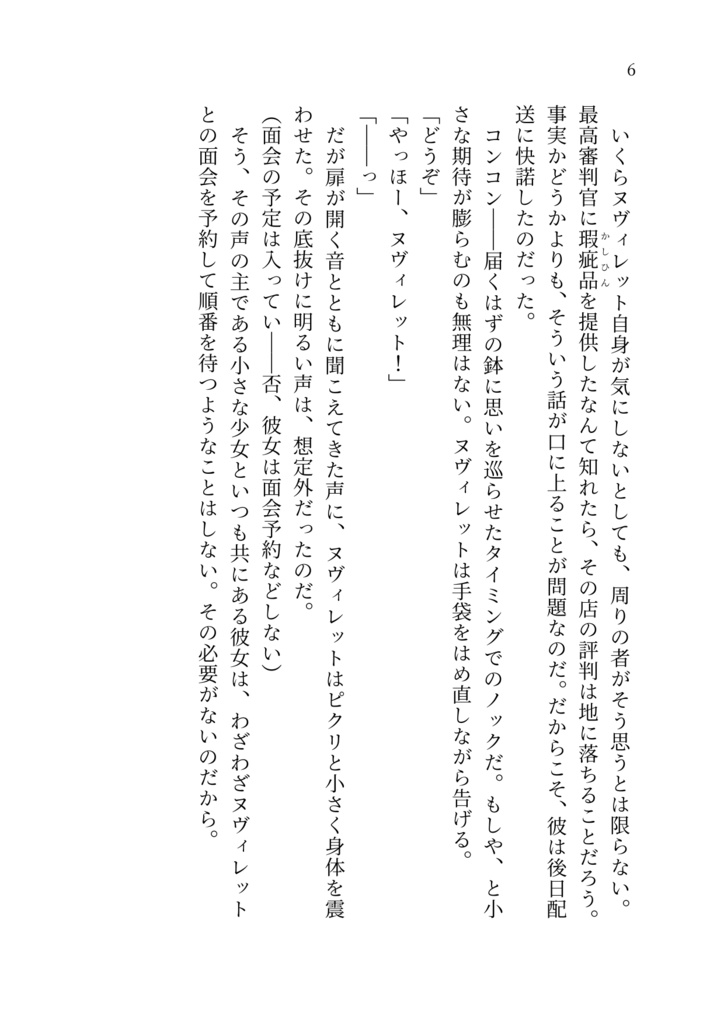 6
いくらヌヴィレット自身が気にしないとしても、周りの者がそう思うとは限らない。
最高審判官に瑕疵品を提供したなんて知れたら、その店の評判は地に落ちることだろう。
かしひん
事実かどうかよりも、そういう話が口に上ることが問題なのだ。だからこそ、彼は後日配
送に快諾したのだった。
コンコン――届くはずの鉢に思いを巡らせたタイミングでのノックだ。もしや、と小
さな期待が膨らむのも無理はない。ヌヴィレットは手袋をはめ直しながら告げる。
「どうぞ」
「やっほー、ヌヴィレット！」
「――っ」
だが扉が開く音とともに聞こえてきた声に、ヌヴィレットはピクリと小さく身体を震
わせた。その底抜けに明るい声は、想定外だったのだ。
（面会の予定は入ってい――否、彼女は面会予約などしない）
そう、その声の主である小さな少女といつも共にある彼女は、わざわざヌヴィレット
との面会を予約して順番を待つようなことはしない。その必要がないのだから。